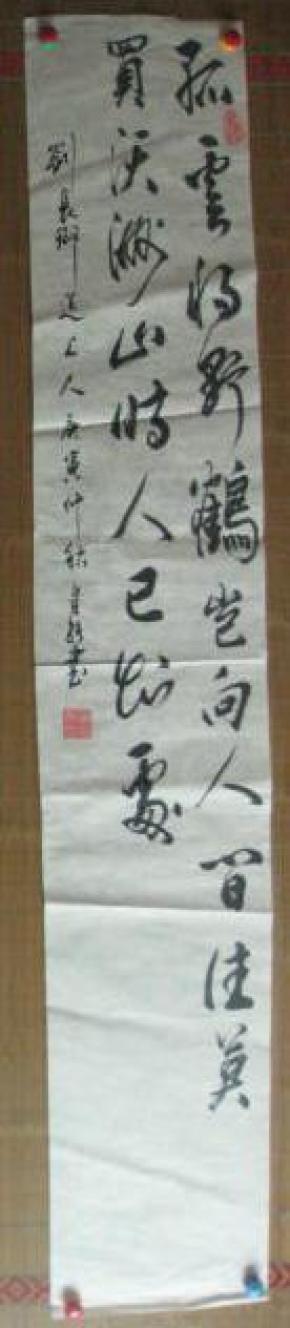 孤雲將野鶴豈向人間住莫
買沃洲山時人已知處
劉長卿送上人庚寅仲秋書